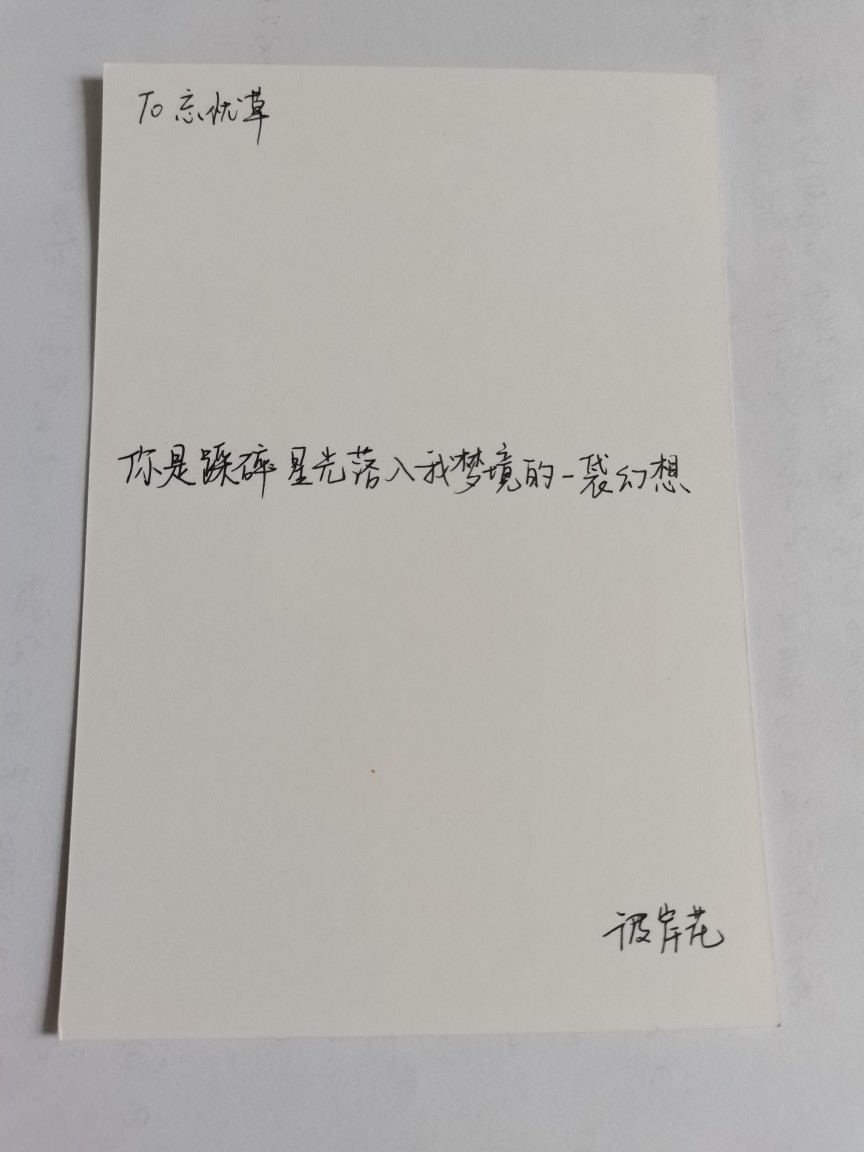 To 忘忧草
你是踩碎星光落入我梦境的一袋幻想
彼岸花